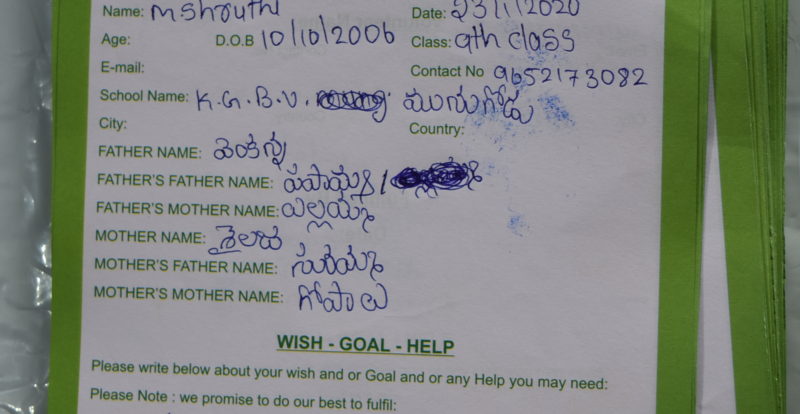 Name: M Shruthi Date: 23/1/2020
Age: D.O.B 10/10/2006 Class: 9th class
E-mail: Contact No 9652173082
School Name: K.G.B.V. మునుగోడు
City: Country:
FATHER NAME: వెంకన్న
FATHER'S FATHER NAME: /
FATHER'S MOTHER NAME: ఎల్లయ్య
MOTHER NAME: శైలజ
MOTHER'S FATHER NAME:
MOTHER'S MOTHER NAME: గోపాల
WISH - GOAL - HELP
Please write below about your wish and or Goal and or any Help you may need:
Please Note : we promise to do our best to fulfil: